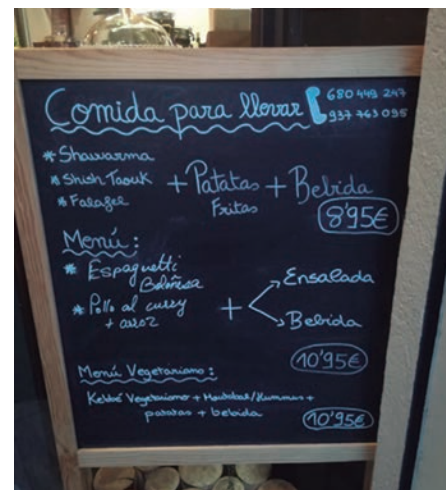 Comida para llevar 680 449 247
937 763 095
* Shawarma
* Shish Taouk + Patatas Fritas + Bebida
* Falafel
8'95€
Menú:
* Espaguetti Boloñesa
* Pollo al curry + arroz
+ Ensalada
Bebida
10'95€
Menú Vegetariano:
Kebbé Vegetariano + Moutabal/Hummus +
patatas + bebida 10'95€